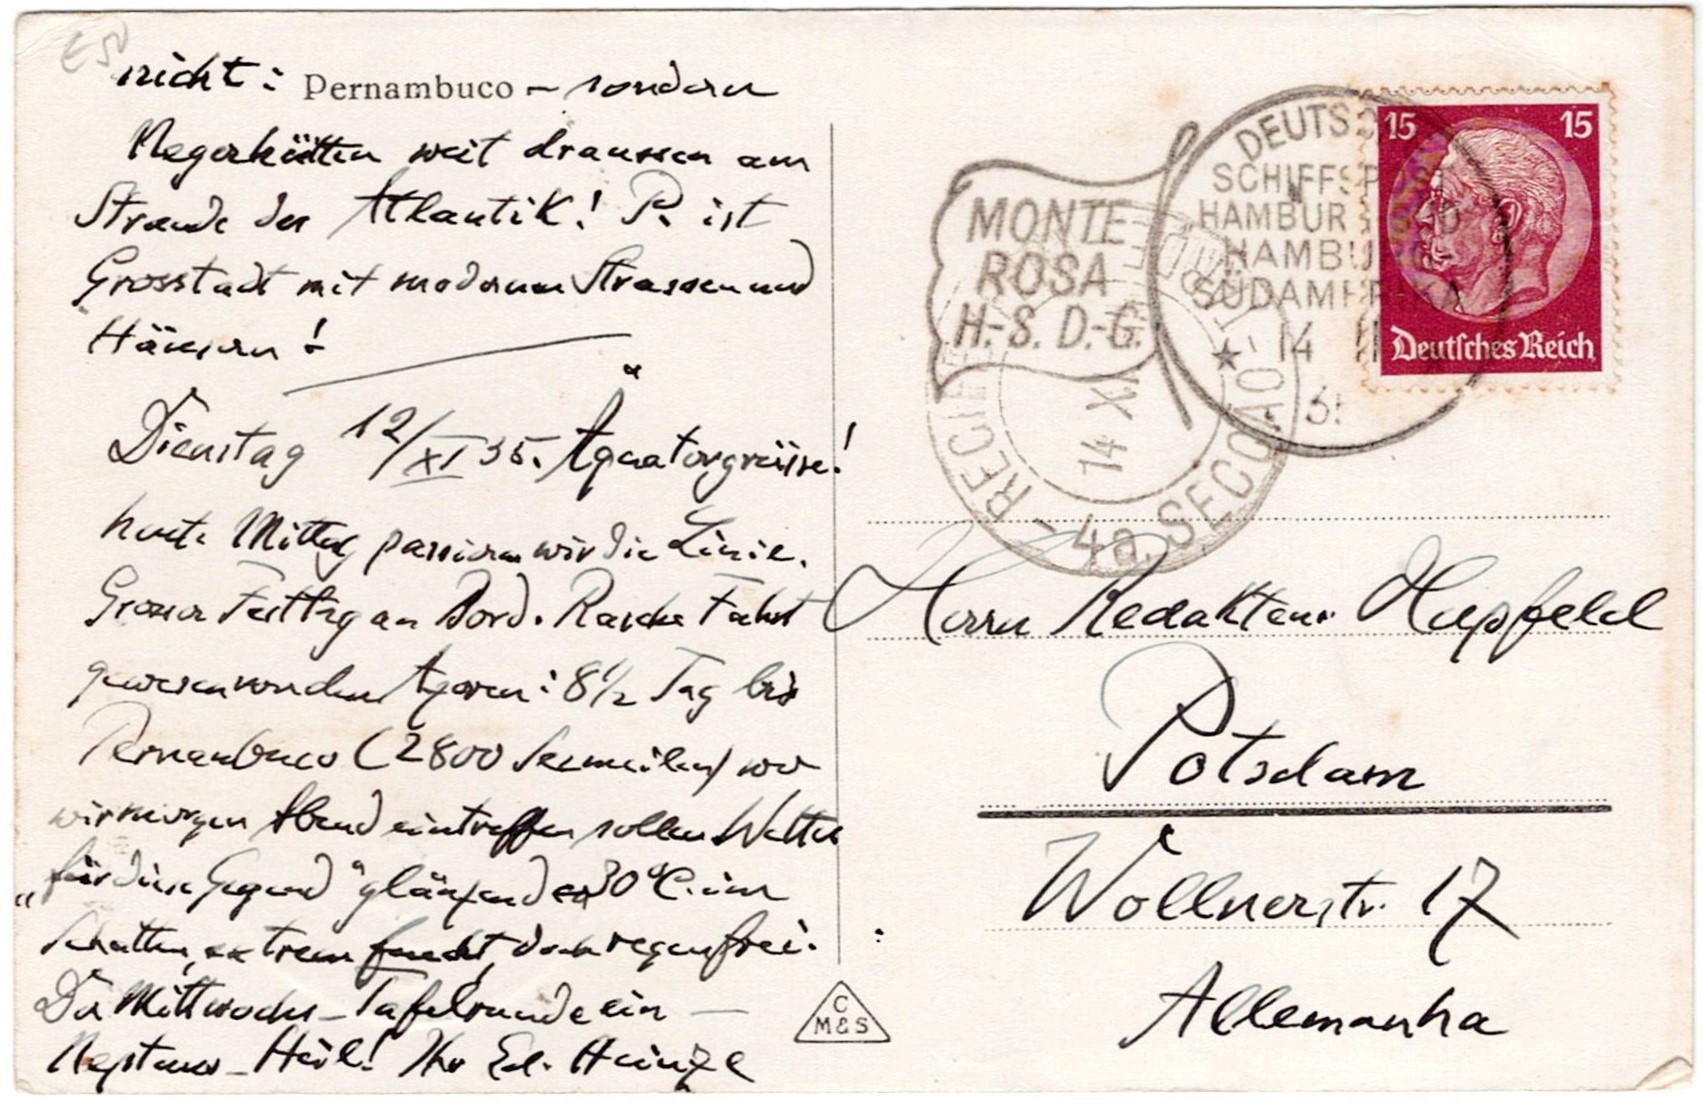 nicht: Pernambuco – sondern
Negerhütten weit draussen am
Strande der Atlantik! P. ist
Grosstadt mit modernen Strassen und
Häusern!
Dienstag 12/XI 35. Äquatorgrüsse!
heute Mittag passieren wir die Linie.
Grosser Festtag an Bord. Rasche Fahrt
gewesen von den Azoren: 8 1/2 Tag bis
Pernambuco (2800 Seemeilen) wo
wir morgen Abend eintreffen sollen Wetter
„für diese Gegend" glänzend 30°C. im
Schatten, extrem feucht, doch regenfrei.
Der Mittwochs-Tafelrunde ein –
Neptuns-Heil! Ihr Ed. Heinze
C
M&S
MONTE
ROSA
H.-S. D.-G.
DEUTSCHE
SCHIFFSPOST
HAMBURG-SÜD
HAMBURG-
SÜDAMERIKA
★ 14 11
35
RECIFE
14 XI
4a. SECÇÃO
15 15
Deutsches Reich
Herrn Redakteur Hupfeld
Potsdam
Wollnerstr. 17
Allemanha